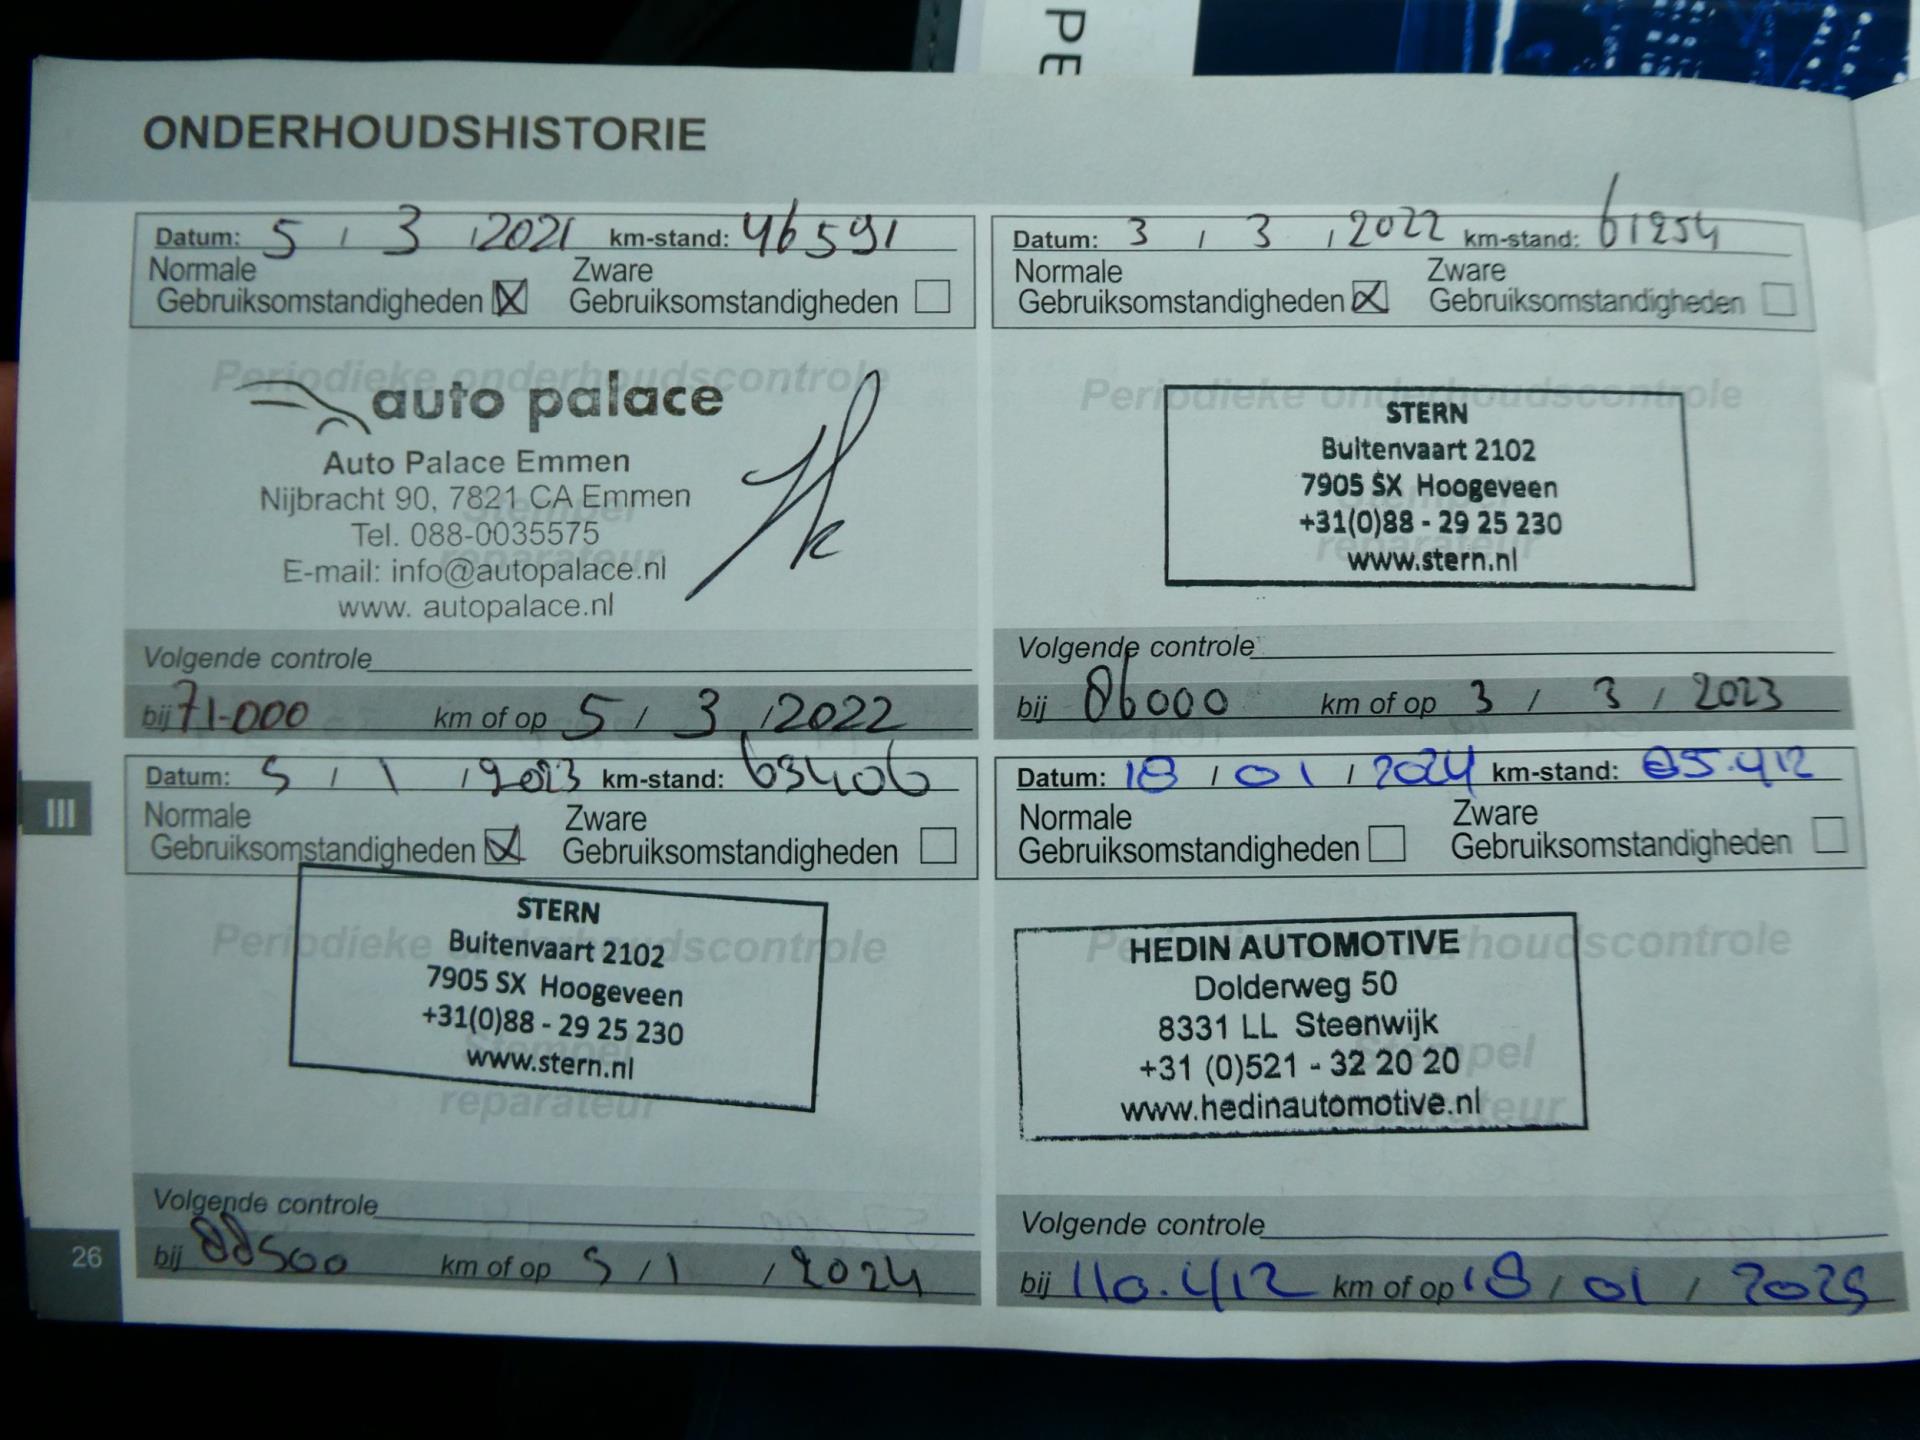 PE
ONDERHOUDSHISTORIE
Datum: 5 / 3 / 2021 km-stand: 46591
Normale Gebruiksomstandigheden ☒ Zware Gebruiksomstandigheden ☐
Periodieke onderhoudscontrole
auto palace
Auto Palace Emmen
Nijbracht 90, 7821 CA Emmen
Stempel
Tel. 088-0035575
reparateur
E-mail: info@autopalace.nl
www. autopalace.nl
Volgende controle
bij 71.000 km of op 5 / 3 / 2022
Datum: 3 / 3 / 2022 km-stand: 61254
Normale Gebruiksomstandigheden ☒ Zware Gebruiksomstandigheden ☐
Periodieke onderhoudscontrole
STERN
Buitenvaart 2102
7905 SX Hoogeveen
Stempel
+31(0)88 - 29 25 230
reparateur
www.stern.nl
Volgende controle
bij 86000 km of op 3 / 3 / 2023
III
Datum: 5 / 1 / 2023 km-stand: 63406
Normale Gebruiksomstandigheden ☒ Zware Gebruiksomstandigheden ☐
STERN
Periodieke onderhoudscontrole
Buitenvaart 2102
7905 SX Hoogeveen
+31(0)88 - 29 25 230
Stempel
www.stern.nl
reparateur
Volgende controle
bij 88500 km of op 5 / 1 / 2024
Datum: 18 / 01 / 2024 km-stand: 85.412
Normale Gebruiksomstandigheden ☐ Zware Gebruiksomstandigheden ☐
Periodieke onderhoudscontrole
HEDIN AUTOMOTIVE
Dolderweg 50
8331 LL Steenwijk
Stempel
+31 (0)521 - 32 20 20
reparateur
www.hedinautomotive.nl
Volgende controle
bij 110.412 km of op 18 / 01 / 2025
26